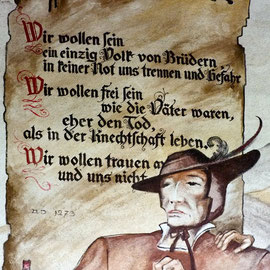 Wir wollen sein
ein einzig Volk von Brüdern,
in keiner Not uns trennen und Gefahr
Wir wollen frei sein
wie die Väter waren,
eher den Tod,
als in der Knechtschaft leben.
Wir wollen trauen
und uns nicht